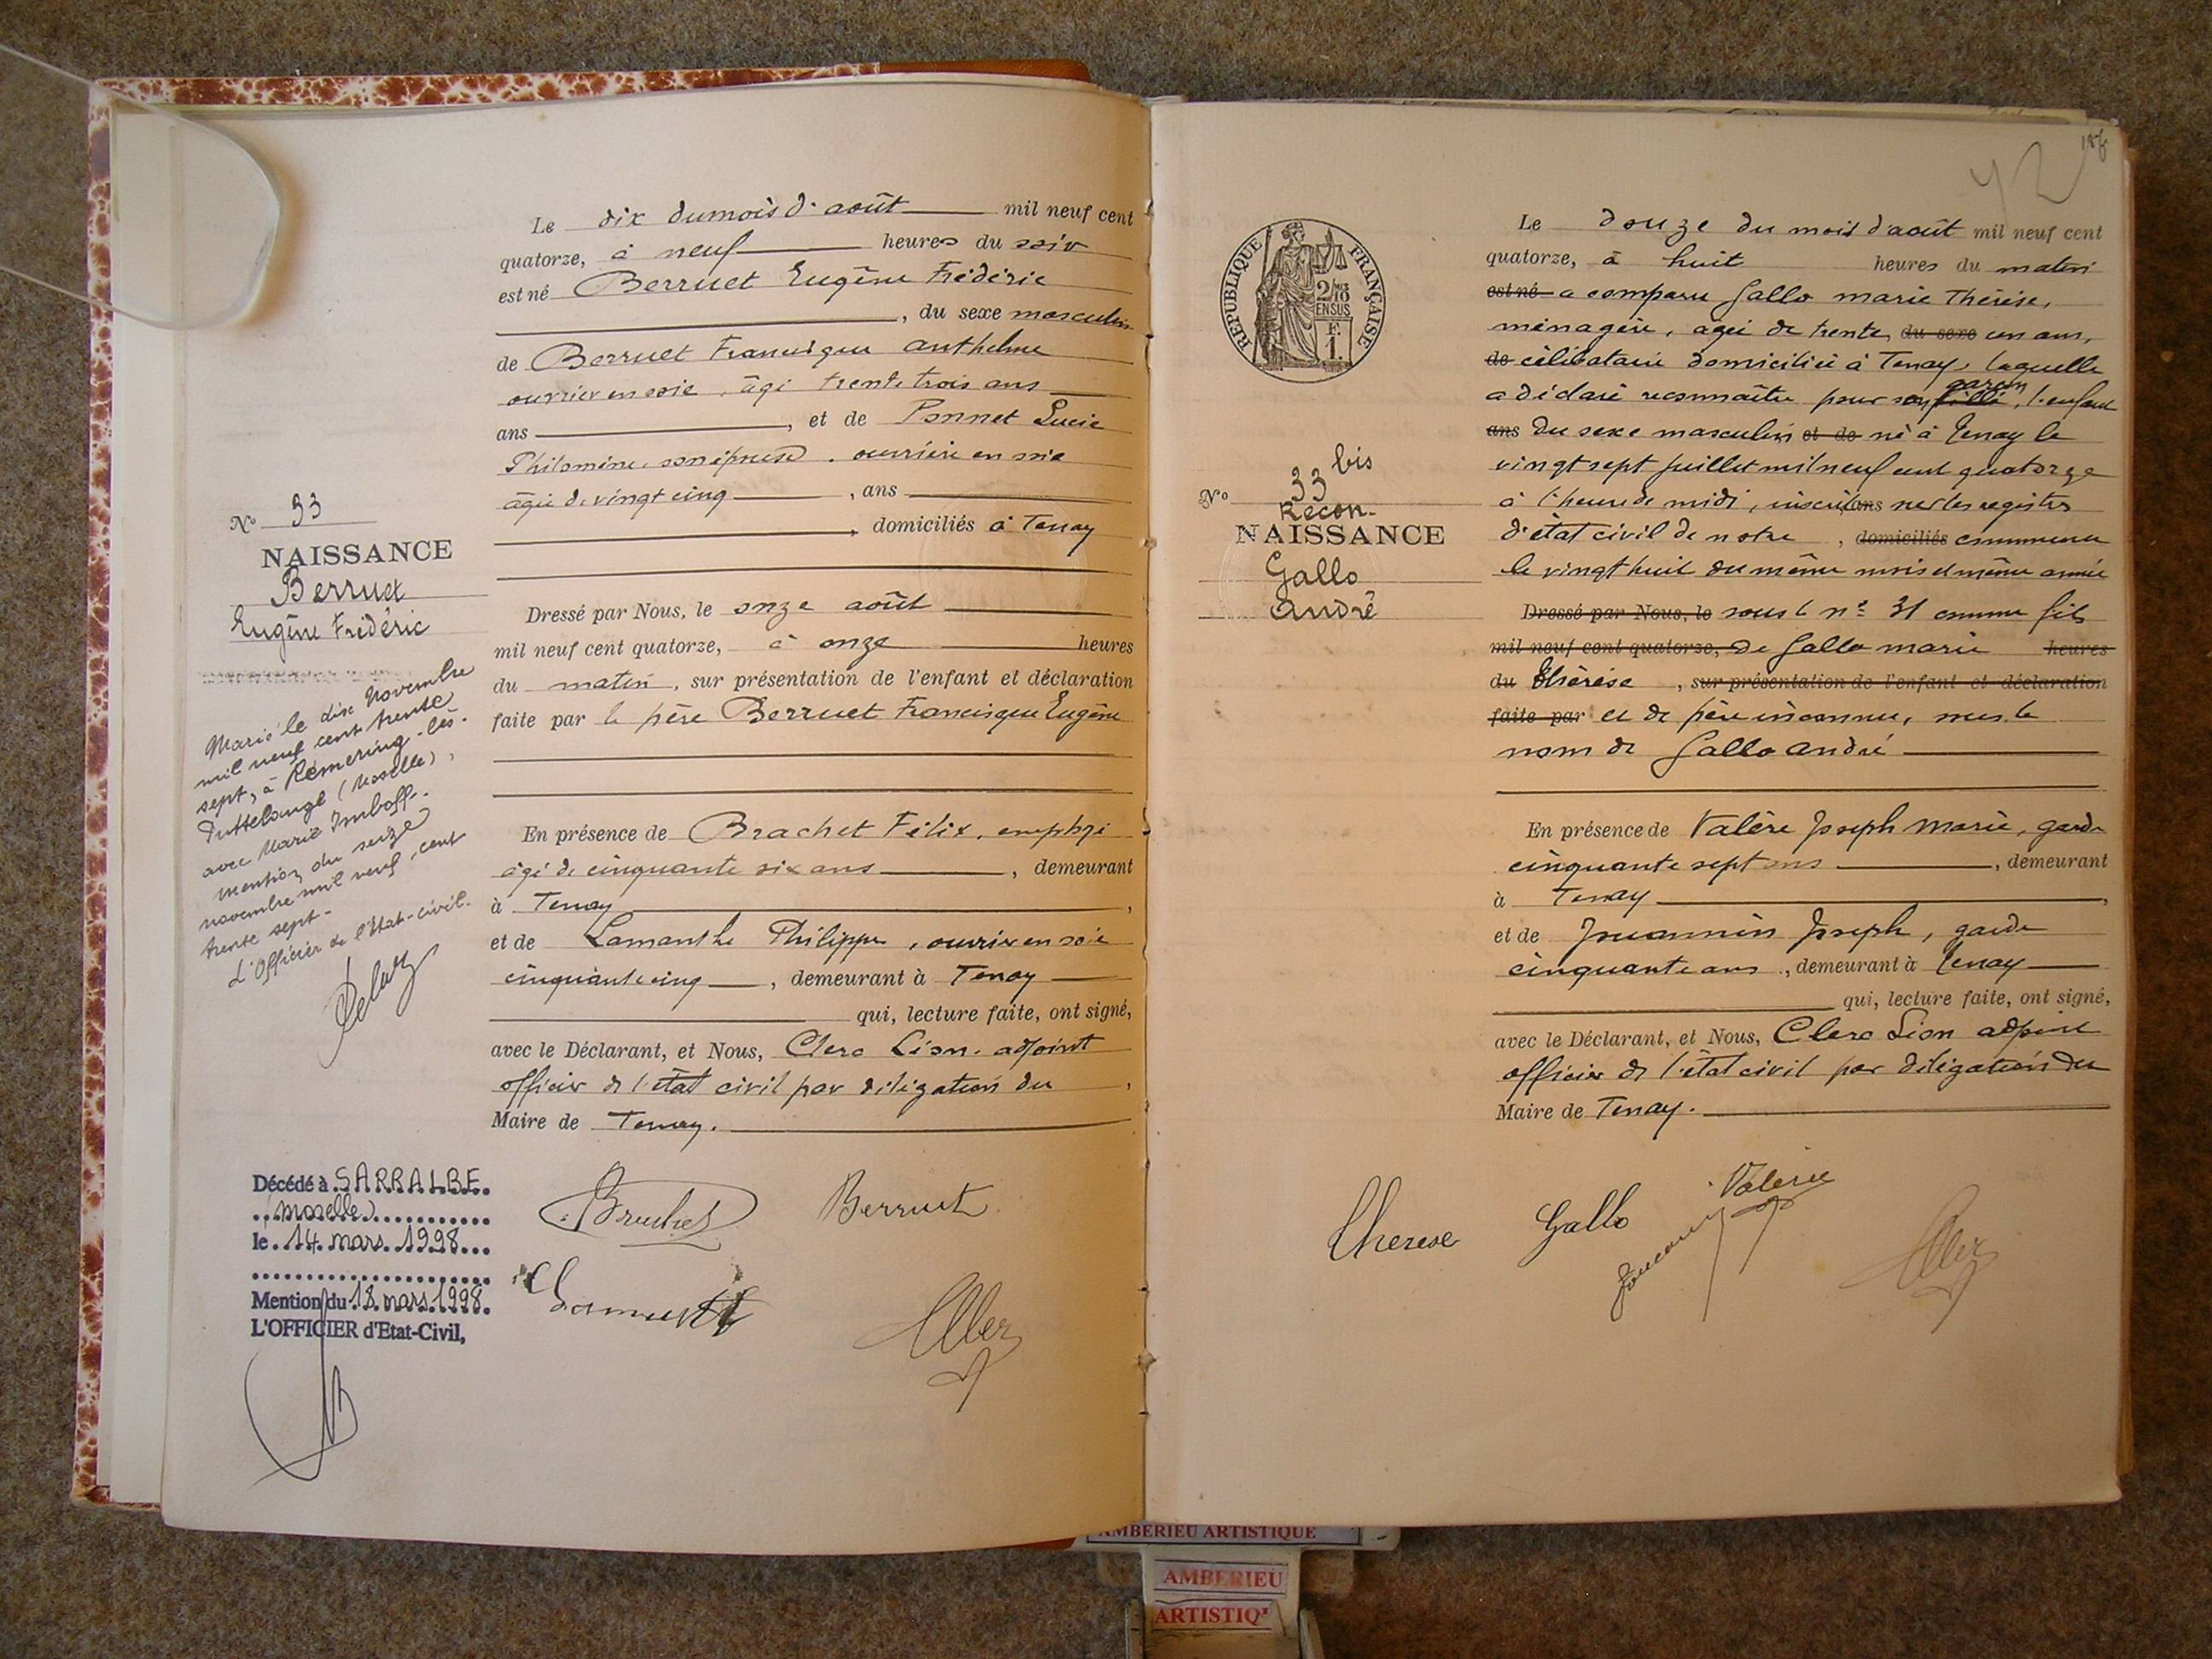 Le dix du mois d'août mil neuf cent
quatorze, à neuf heures du soir
est né Berruet Eugène Frédéric
, du sexe masculin
de Berruet Francisque Anthelme
ouvrier en soie, âgé trente trois ans
ans , et de Ponnet Lucie
Philomène, son épouse, ouvrière en soie
âgée de vingt cinq , ans
, domiciliés à Tenay
Dressé par Nous, le onze août
mil neuf cent quatorze, à onze heures
du matin, sur présentation de l'enfant et déclaration
faite par le père Berruet Francisque Eugène
En présence de Brachet Félix, employé
âgé de cinquante six ans , demeurant
à Tenay ,
et de Philippe, ouvrier en soie
cinquante cinq , demeurant à Tenay
qui, lecture faite, ont signé,
avec le Déclarant, et Nous, Clerc Léon, adjoint
officier de l'état civil par délégation du ,
Maire de Tenay.
Nº 33
NAISSANCE
Berruet
Eugène Frédéric
Marié le dix novembre
mil neuf cent trente
sept, à Rémering-lès-
Puttelange (Moselle),
avec Marie Imhoff.
Mention du seize
novembre mil neuf cent
trente sept.
L'Officier de l'Etat-civil.
Décédé à SARRALBE
(Moselle)
le 14 mars 1998
Mention du 18 mars 1998
L'OFFICIER d'Etat-Civil,
Berruet
REPUBLIQUE FRANÇAISE
2/10
EN SUS
F.
1.
Nº 33 bis
Recon-
NAISSANCE
Gallo
André
Le douze du mois d'août mil neuf cent
quatorze, à huit heures du matin
est né a comparu Gallo Marie Thérèse,
ménagère, âgée de trente du sexe un ans,
de célibataire domiciliée à Tenay, laquelle
a déclaré reconnaître pour son fille garçon, l'enfant
ans du sexe masculin et de né à Tenay le
vingt sept juillet mil neuf cent quatorze
à l'heure de midi, inscrit ans sur les registres
d'état civil de notre , domiciliés commune
le vingt huit du même mois et même année
Dressé par Nous, le sous le nº 31 comme fils
mil neuf cent quatorze, de Gallo Marie heures
du Thérèse , sur présentation de l'enfant et déclaration
faite par et de père inconnu, sous le
nom de Gallo André
En présence de Valère Joseph Marie, garde
cinquante sept ans , demeurant
à Tenay ,
et de Jouannin Joseph, garde
cinquante ans , demeurant à Tenay
qui, lecture faite, ont signé,
avec le Déclarant, et Nous, Clerc Léon adjoint
officier de l'état civil par délégation du
Maire de Tenay.
Therese Gallo
AMBERIEU ARTISTIQUE
AMBERIEU
ARTISTIQ